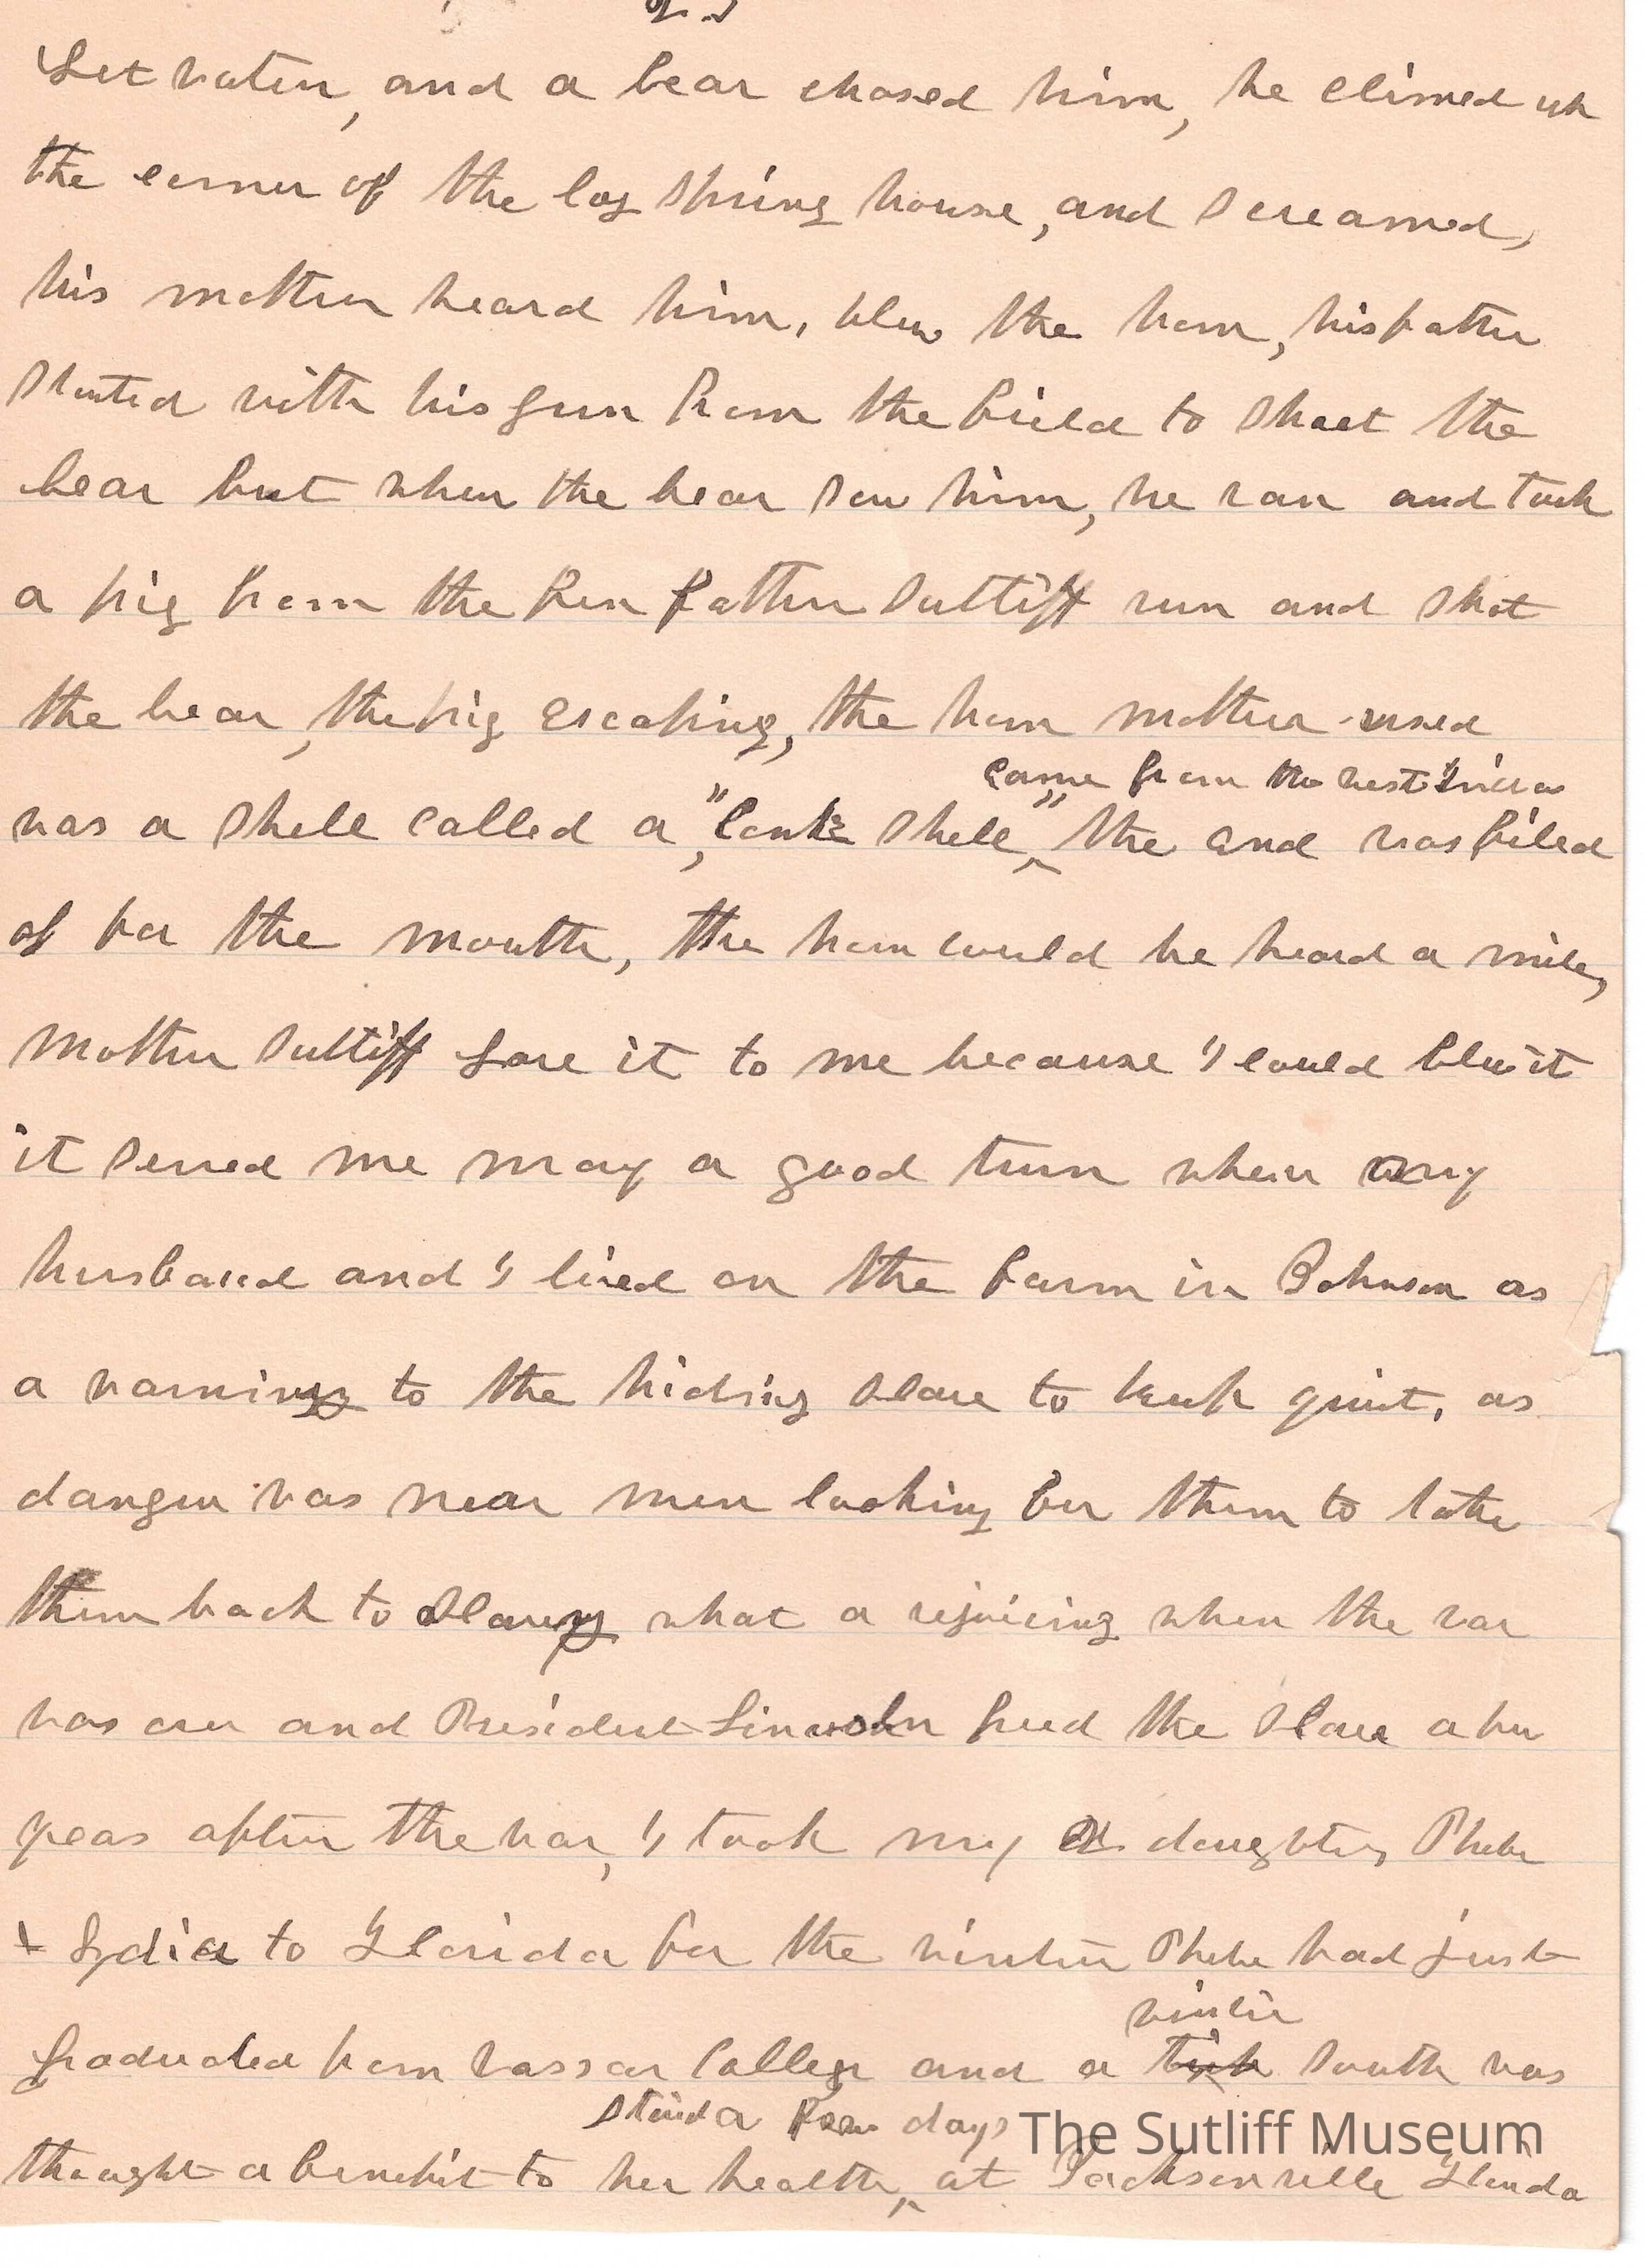 get water, and a bear chased him, he climed up
the corner of the log spring house, and screamed,
his mother heard him, blew the horn, his father
started with his gun from the field to shoot the
bear but when the bear saw him, he ran and took
a pig from the pen father Sutliff run and shot
the bear, the pig escaping, the horn mother used
came from the west India
was a shell called a "Conk shell" ^ the end was filed
of for the mouth, the horn could be heard a mile,
mother Sutliff gave it to me because I could blow it
it served me may a good turn when my
husband and I lived on the farm in Bohnson as
a warning to the hiding slave to keep quiet, as
danger was near men looking for them to take
them back to slavery what a rejoicing when the war
was over and President Lincoln freed the slave a few
yeas after the war, I took my daughters Phebe
+ Lydia to Florida for the winter Phebe had just
winter
graduated from Vassar College and a trip South was
staid a few days
thought a benefit to her health, ^ at Jacksonville Florida
The Sutliff Museum